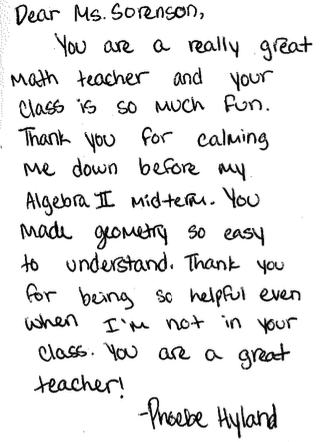 Dear Ms. Sorenson,
You are a really great
math teacher and your
class is so much fun.
Thank you for calming
me down before my
Algebra II midterm. You
made geometry so easy
to understand. Thank you
for being so helpful even
when I'm not in your
class. You are a great
teacher!
-Phoebe Hyland